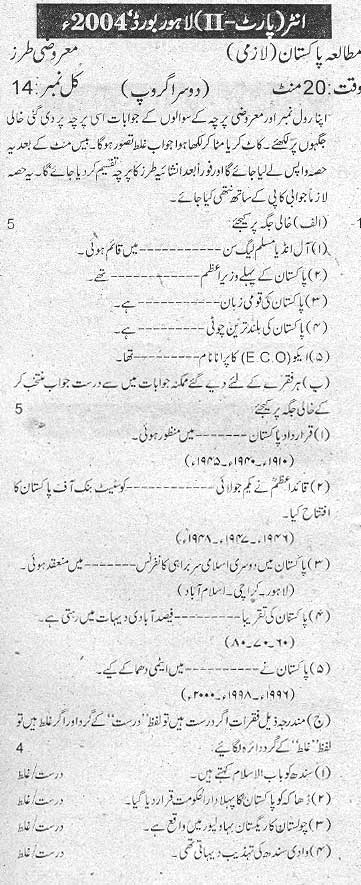 انٹر (پارٹ-II) لاہور بورڈ، 2004ء
مطالعہ پاکستان (لازمی) معروضی طرز
وقت: 20 منٹ (دوسرا گروپ) کل نمبر: 14
اپنا رول نمبر اور معروضی پرچہ کے سوالوں کے جوابات اسی پرچہ پر دی گئی خالی
جگہوں پر لکھئے۔ کاٹ کر یا مٹا کر لکھا ہوا جواب غلط تصور ہو گا۔ بیس منٹ کے بعد یہ
حصہ واپس لے لیا جائے گا اور فوراً بعد انشائیہ طرز کا پرچہ تقسیم کر دیا جائے گا۔ یہ حصہ
لازماً جوابی کاپی کے ساتھ نتھی کیا جائے۔
1- (الف) خالی جگہ پر کیجئے 5
(۱) آل انڈیا مسلم لیگ سن ---------- میں قائم ہوئی۔
(۲) پاکستان کے پہلے وزیر اعظم ---------- تھے۔
(۳) پاکستان کی قومی زبان ---------- ہے۔
(۴) پاکستان کی بلند ترین چوٹی ---------- ہے۔
(۵) ایکو (E.C.O) کا پرانا نام ---------- تھا۔
(ب) ہر فقرے کے لئے دیے گئے ممکنہ جوابات میں سے درست جواب منتخب کر
کے خالی جگہ پر کیجئے 5
(۱) قرارداد پاکستان ------- میں منظور ہوئی۔
(۱۹۱۰۔ ۱۹۴۰۔ ۱۹۴۵ء)
(۲) قائد اعظمؒ نے یکم جولائی ---------- کو سٹیٹ بنک آف پاکستان کا
افتتاح کیا۔
(۱۹۴۶۔ ۱۹۴۷۔ ۱۹۴۸ء)
(۳) پاکستان میں دوسری اسلامی سربراہی کانفرنس ------- میں منعقد ہوئی۔
(لاہور۔ کراچی۔ اسلام آباد)
(۴) پاکستان کی تقریباً ------- فیصد آبادی دیہات میں رہتی ہے۔
(۶۰۔ ۷۰۔ ۸۰)
(۵) پاکستان نے ---------- میں ایٹمی دھماکے کیے۔
(۱۹۹۶۔ ۱۹۹۸۔ ۲۰۰۰ء)
(ج) مندرجہ ذیل فقرات اگر درست ہیں تو لفظ "درست" کے گرد اور اگر غلط ہیں تو
لفظ "غلط" کے گرد دائرہ لگائیے 4
(۱) سندھ کو باب الاسلام کہتے ہیں۔ درست/غلط
(۲) ڈھاکہ کو پاکستان کا پہلا دارالحکومت قرار دیا گیا۔ درست/غلط
(۳) چولستان کا ریگستان بہاولپور میں واقع ہے۔ درست/غلط
(۴) وادی سندھ کی تہذیب دیہاتی تھی۔ درست/غلط